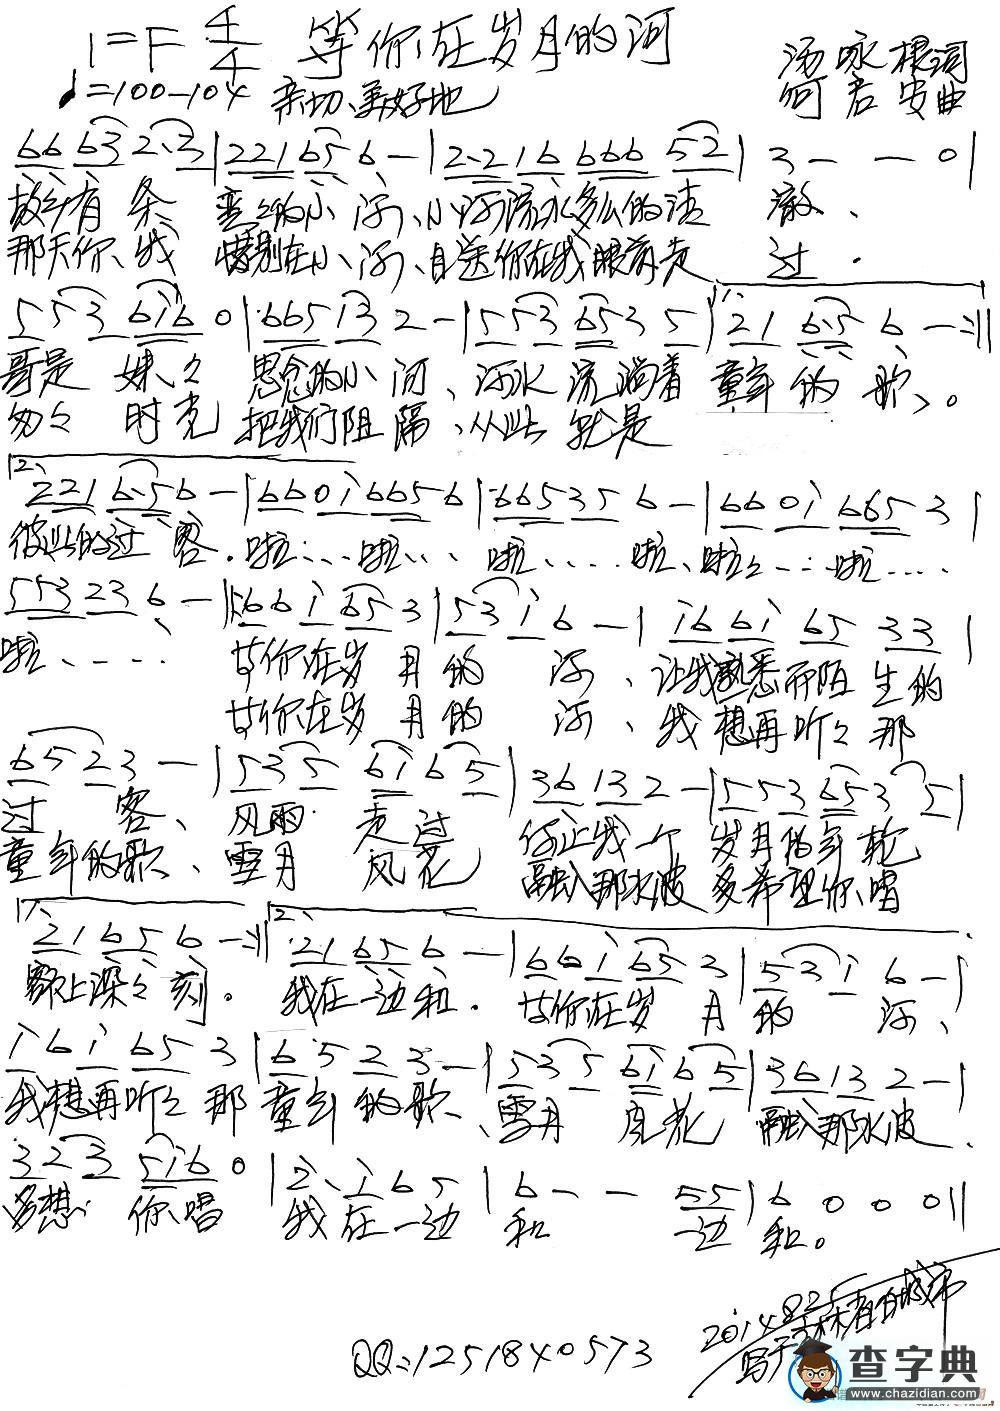 1=F 4/4 等你在岁月的河
汤咏根词
♩=100-104 亲切、美好地
何君安曲
66 63 2·3|221 65 6 -|2·2 16 666 52|3 - - 0|
故乡有条 弯々的小河、小河流水多么的清澈、
那天你、我 惜别在小河、目送你在我眼前走过.
5 53 6i6 0|665 13 2 -|553 653 5|21 6·5 6 - :||
哥是妹々 思念的小河、河水流淌着童年的歌、。
匆々时光 把我们阻隔、从此就是
221 6·5 6 -|66 0i 665 6|665 35 6 -|66 0i 665 3|
彼此的过客. 啦……啦……啦……啦、啦々……啦……
553 23 6 -|66i 65 3|53i 6 -|i66i 65 33|
啦、…… 等你在岁月的河、让我熟悉而陌生的
等你在岁月的河、我想再听々那
6523 -|535 6i65|36 13 2 -|553 653 5|
过客、风雨走过 你让我一个岁月的年轮
童年的歌、雪月风花 融入那水波 多希望你、唱
21 65 6 - :||21 65 6 -|66i 65 3|53i 6 -|
上深々刻。 我在一边和. 等你在岁月的河、
i6i 65 3|6523 -|535 6i65|36 13 2 -|
我想再听々那童年的歌、雪月风花 融入那水波.
323 5i6 0|2·i 65|6 - - 55|6 0 0 0||
多想 你、唱 我在一边和 边和。
2014.8.25
写于
QQ:1251840573
查字典
www.chazidian.com